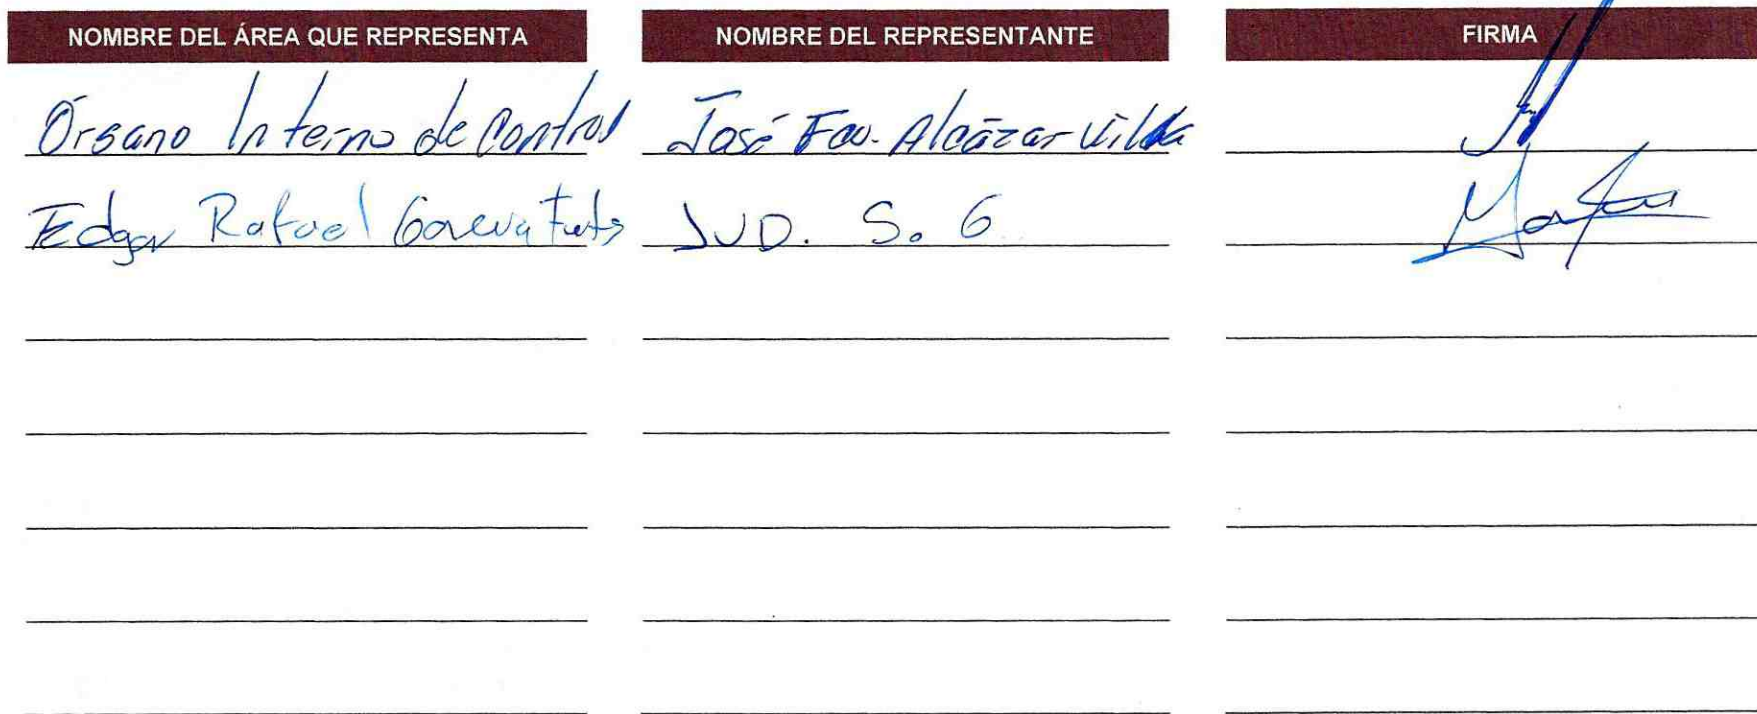 NOMBRE DEL ÁREA QUE REPRESENTA NOMBRE DEL REPRESENTANTE FIRMA
Órgano Interno de Control José Fco. Alcázar
Edgar Rafael JUD. S. G